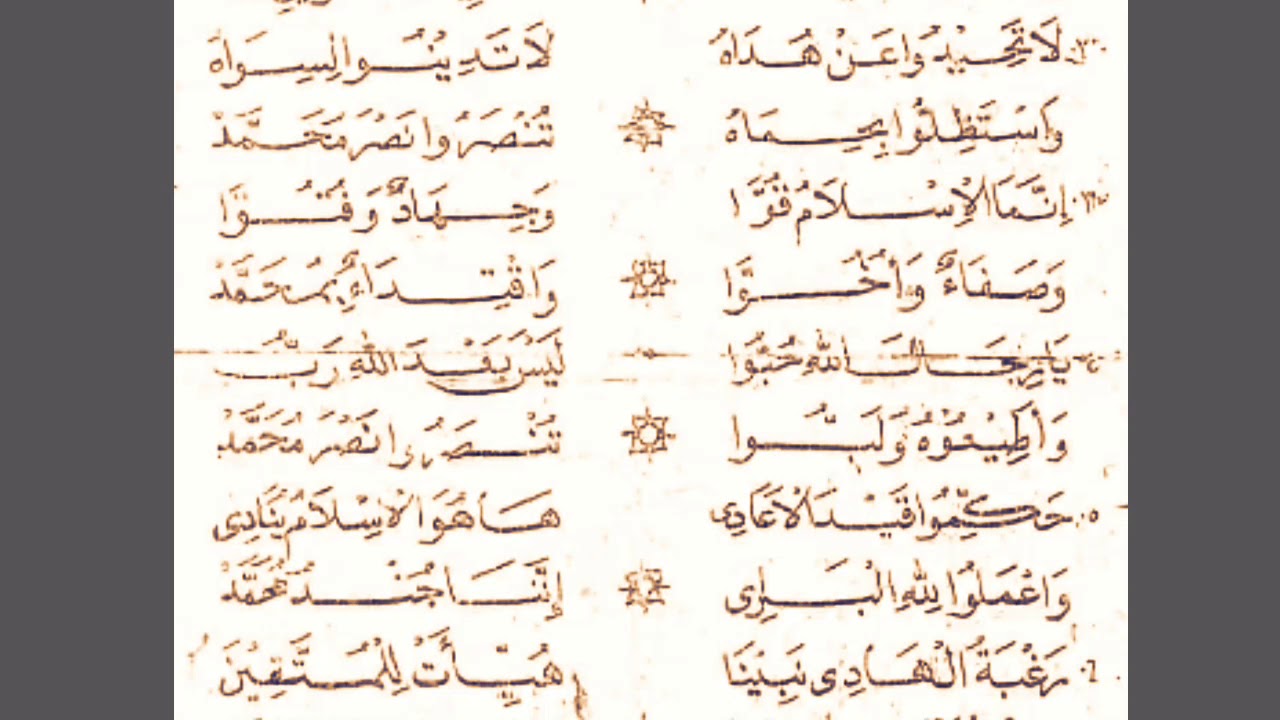 ٢. لَا تَحِيْدُوا عَنْ هُدَاهُ لَا تَدِيْنُوا لِسِوَاهُ
وَاسْتَظِلُّوا بِحِمَاهُ تُنْصَرُوا نَصْرَ مُحَمَّدْ
٣. إِنَّمَا الْإِسْلَامُ قُوَّا وَجِهَادٌ وَفُتُوَّا
وَصَفَاءٌ وَأُخُوَّا وَاقْتِدَاءٌ بِمُحَمَّدْ
٤. يَا رِجَالَ اللهِ هُبُّوا لَيْسَ بَعْدَ اللهِ رَبُّ
وَأَطِيْعُوْهُ وَلَبُّوا تُنْصَرُوا نَصْرَ مُحَمَّدْ
٥. حَكِّمُوا قَيْدَ الْأَعَادِى هَا هُوَ الْإِسْلَامُ يُنَادِى
وَاعْمَلُوا لِلهِ الْبَرِى إِنَّنَا جُنْدُ مُحَمَّدْ
٦. رَغْبَةُ الْهَادِى نَبِيْنَا هُيِّأَتْ لِلْمُتَّقِيْنَ